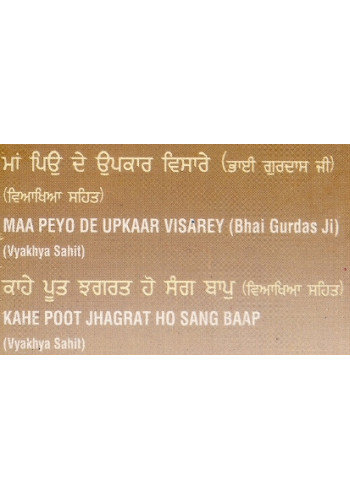 ਮਾਂ ਪਿਓ ਦੇ ਉਪਕਾਰ ਵਿਸਾਰੇ (ਭਾਈ ਗੁਰਦਾਸ ਜੀ)
(ਵਿਆਖਿਆ ਸਹਿਤ)
MAA PEYO DE UPKAAR VISAREY (Bhai Gurdas Ji)
(Vyakhya Sahit)
ਕਾਹੇ ਪੂਤ ਝਗਰਤ ਹੋ ਸੰਗ ਬਾਪੁ (ਵਿਆਖਿਆ ਸਹਿਤ)
KAHE POOT JHAGRAT HO SANG BAAP
(Vyakhya Sahit)